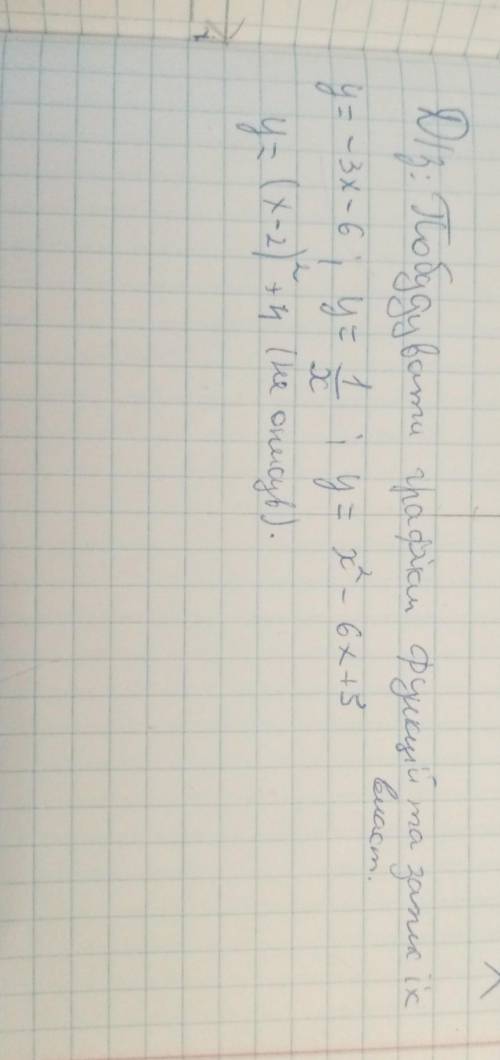 Д/з: Побудувати графіки функцій та запис їх
власт.
y = -3x - 6 ; y = 1/x ; y = x² - 6x + 5
y = (x - 2)² + 4 (не описув).